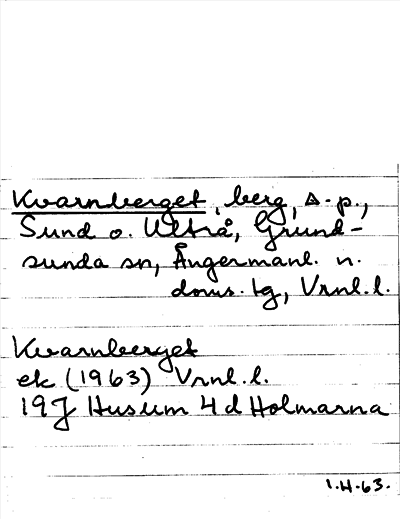 Kvarnberget, berg, Δ-p.,
Sund o. Ultrå, Grund-
sunda sn, Ångermanl. n.
doms. lg, Vrnl.l.
Kvarnberget
ek (1963) Vrnl.l.
19J Husum 4d Holmarna
1.H.63.